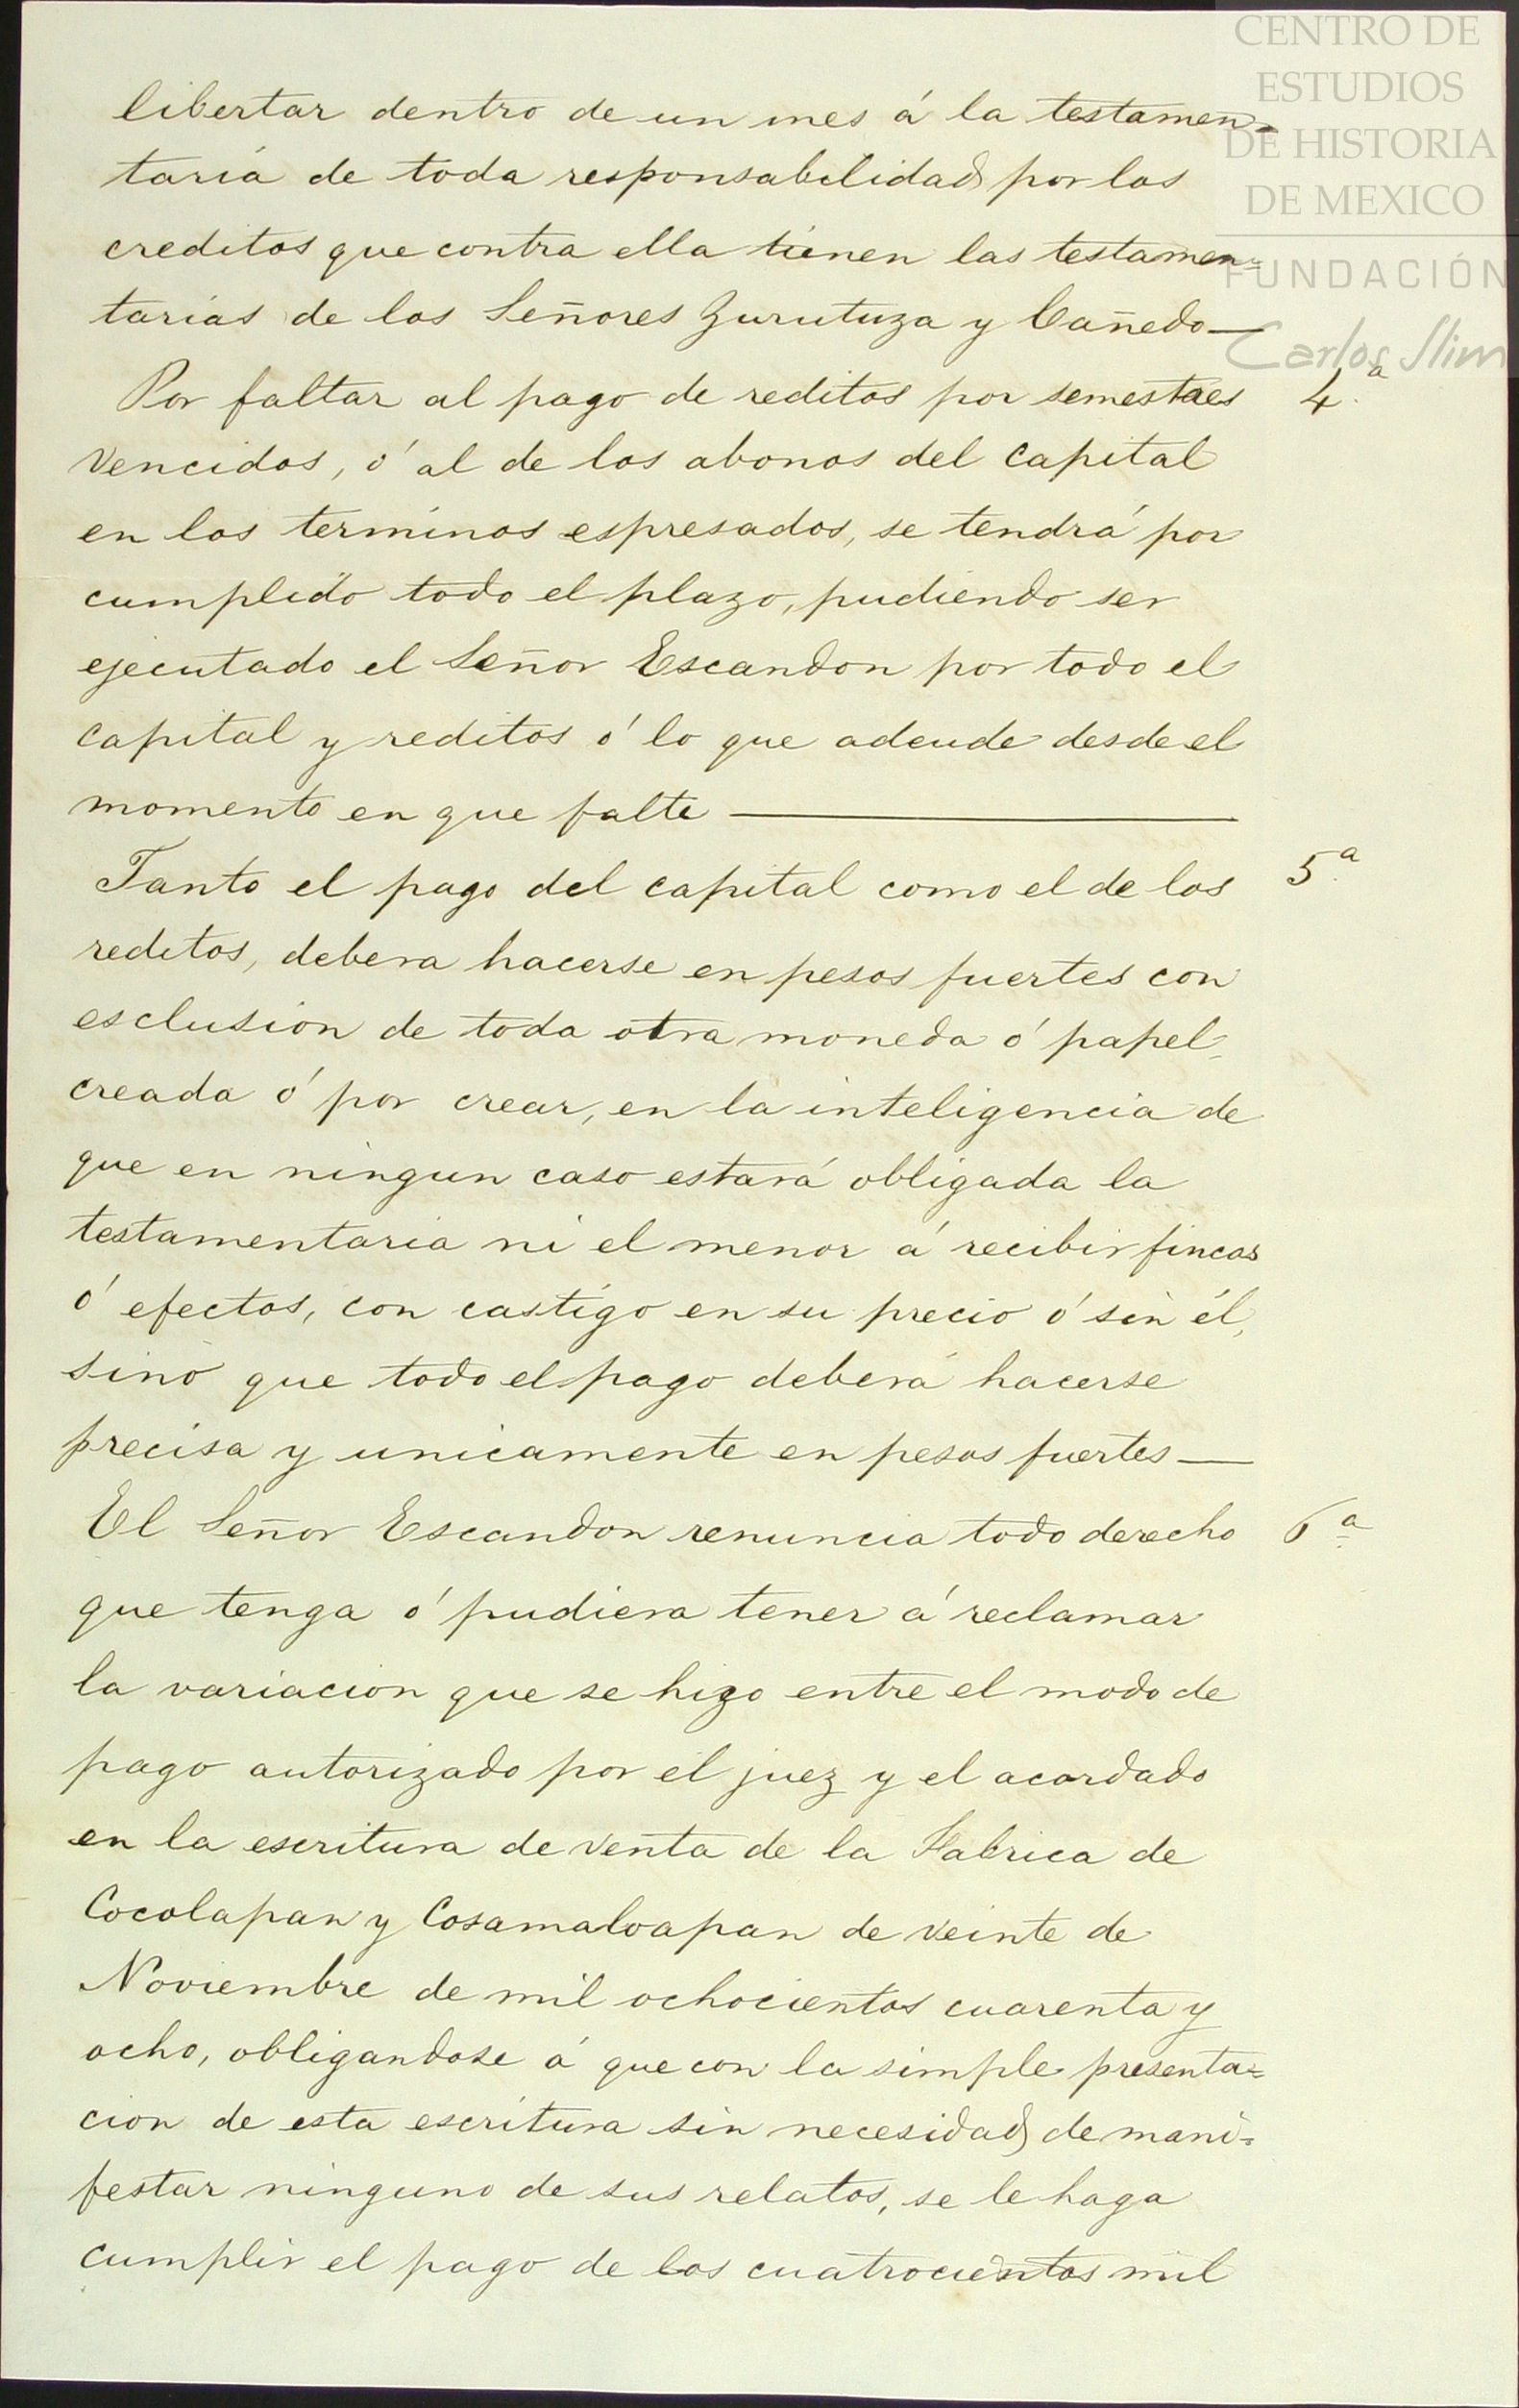 CENTRO DE
ESTUDIOS
DE HISTORIA
DE MEXICO
FUNDACIÓN
Carlos Slim
libertar dentro de un mes á la testamen-
taria de toda responsabilidad por los
creditos que contra ella tienen las testamen=
tarias de los Señores Zurutuza y Cañedo—
Por faltar al pago de reditos por semestres 4.ª
vencidos, ó al de los abonos del capital
en los terminos espresados, se tendrá por
cumplido todo el plazo, pudiendo ser
ejecutado el Señor Escandon por todo el
capital y reditos ó lo que adeude desde el
momento en que falte —
Tanto el pago del capital como el de los 5.ª
reditos, debera hacerse en pesos fuertes con
esclusion de toda otra moneda ó papel,
creada ó por crear, en la inteligencia de
que en ningun caso estará obligada la
testamentaria ni el menor á recibir fincas
ó efectos, con castigo en su precio ó sin él,
sino que todo el pago deberá hacerse
precisa y unicamente en pesos fuertes—
El Señor Escandon renuncia todo derecho 6ª
que tenga ó pudiera tener á reclamar
la variacion que se hizo entre el modo de
pago autorizado por el juez y el acordado
en la escritura de venta de la Fabrica de
Cocolapan y Cosamaloapan de veinte de
Noviembre de mil ochocientos cuarenta y
ocho, obligandose á que con la simple presenta=
cion de esta escritura sin necesidad de mani=
festar ninguno de sus relatos, se le haga
cumplir el pago de los cuatrocientos mil